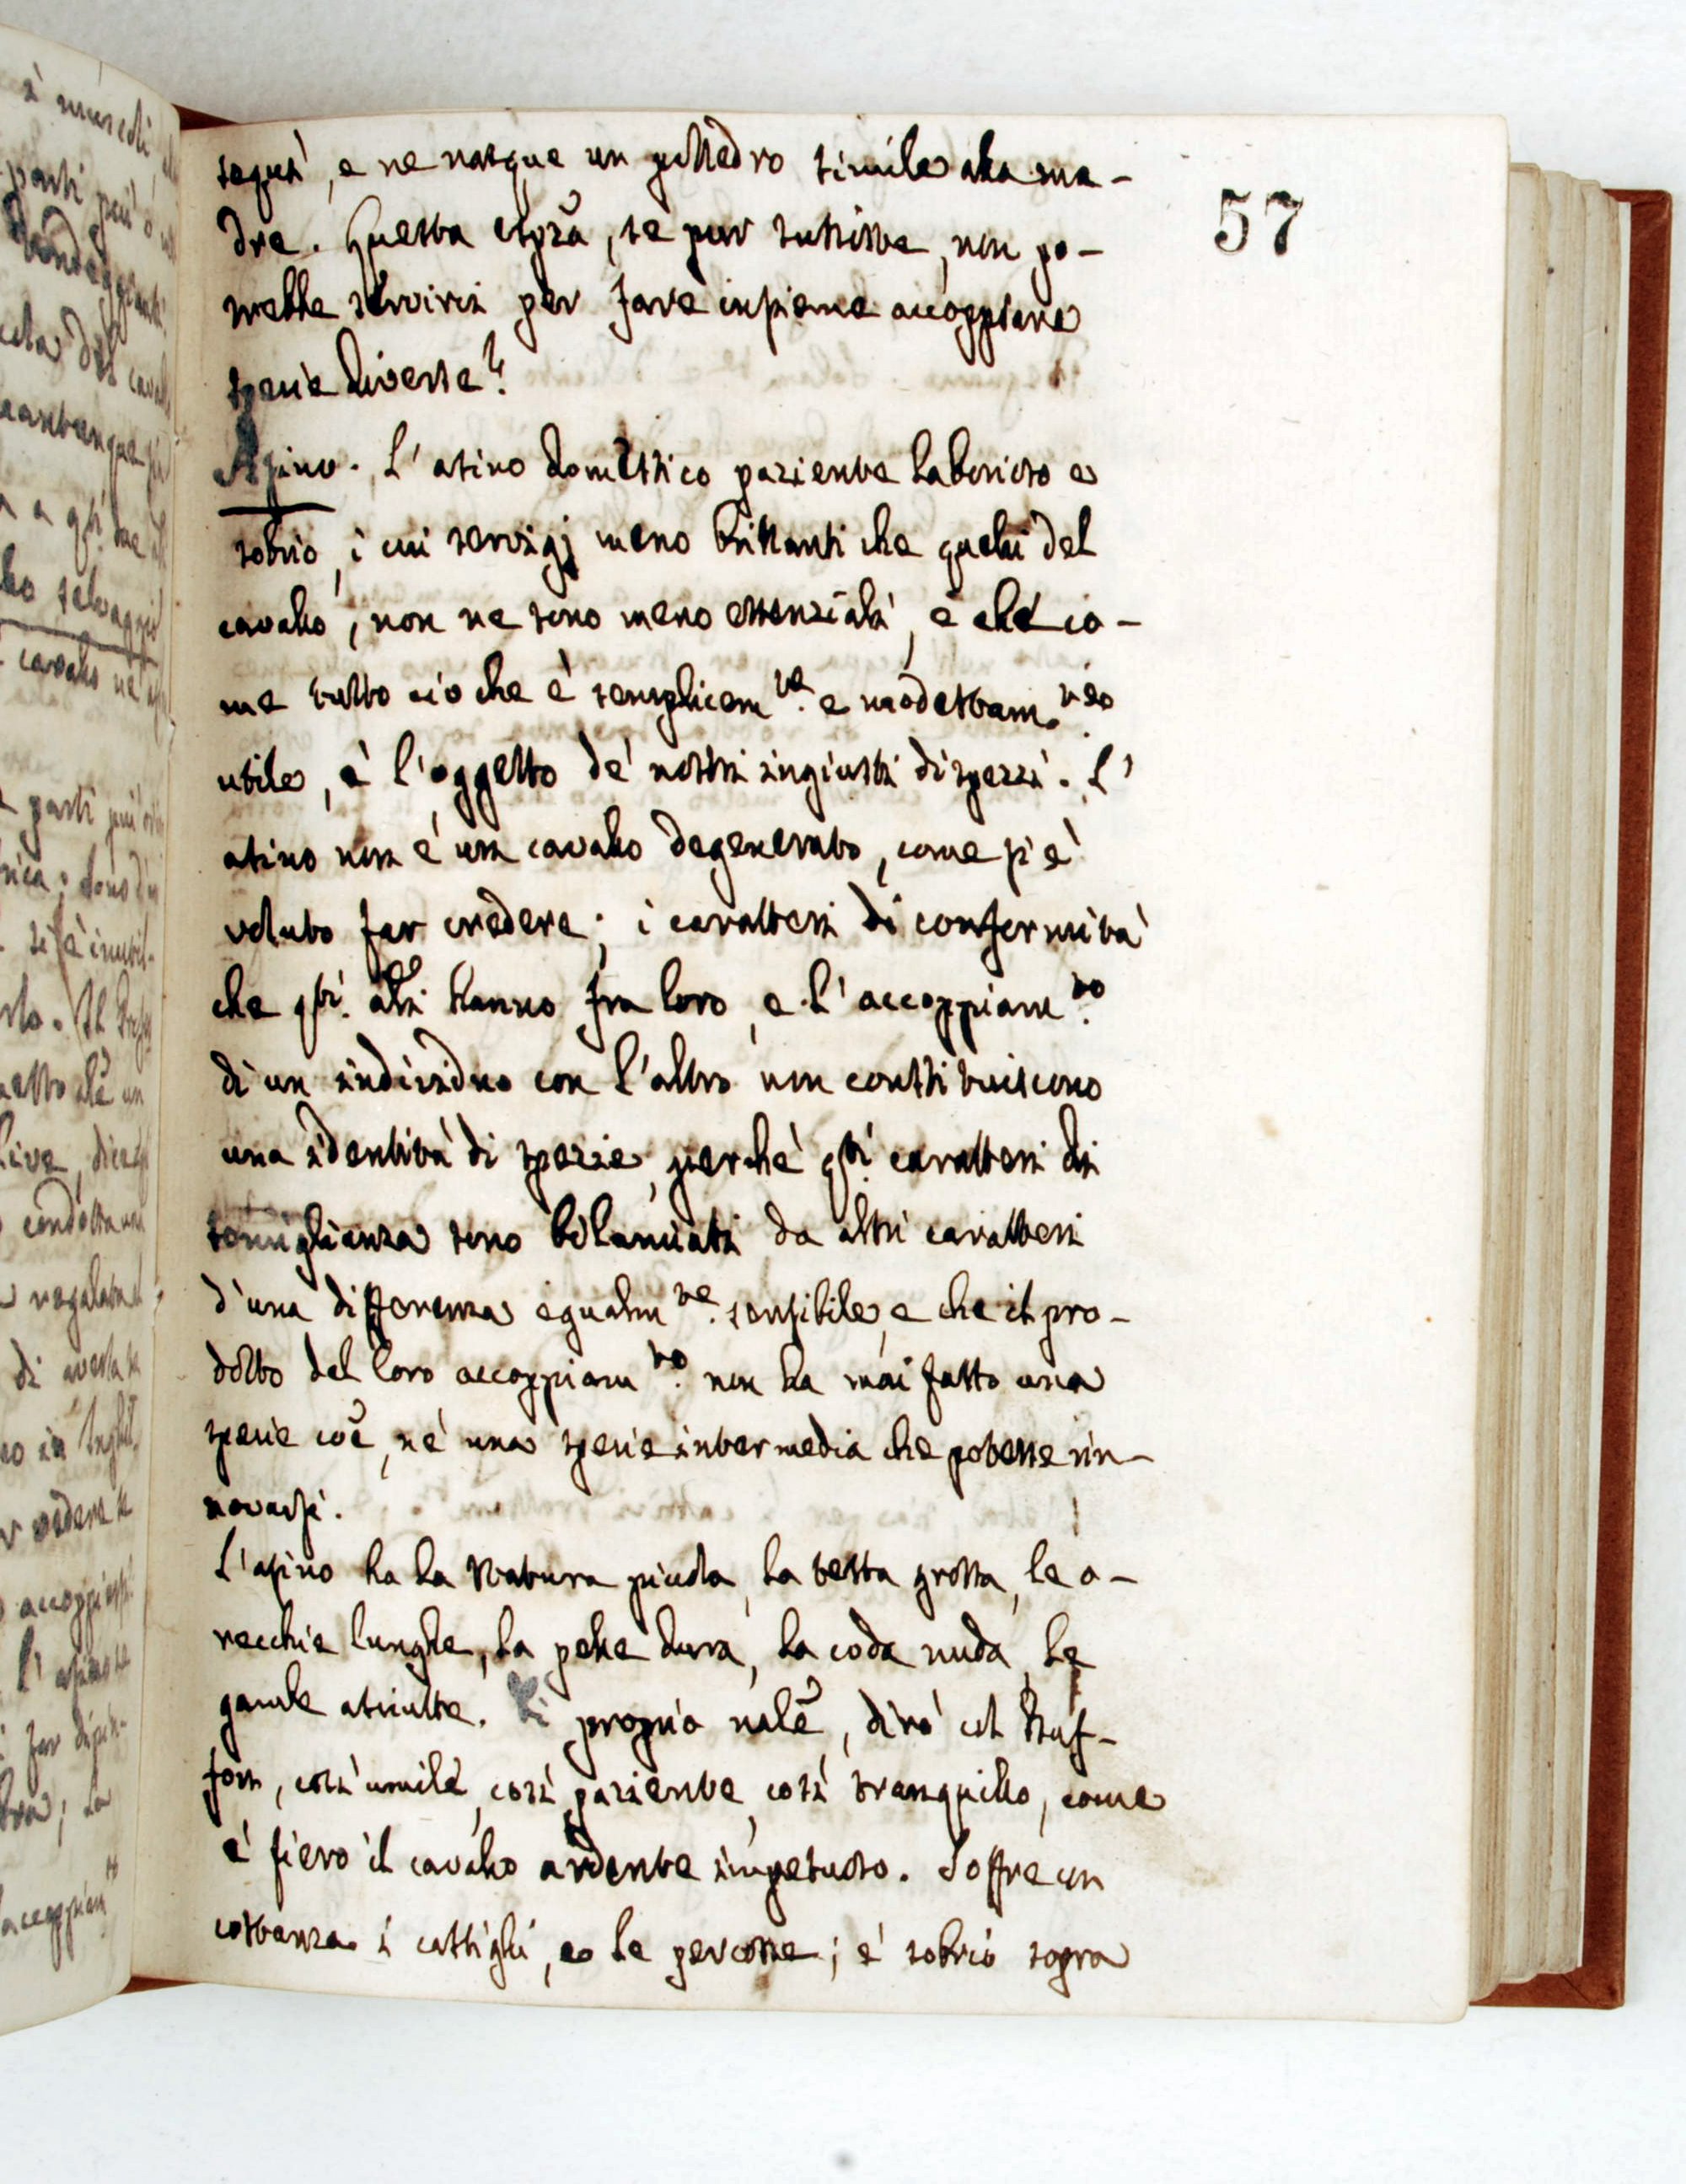 57
seguì, e ne nacque un pulledro simile alla ma-
dre. Questa espza, se pur sussiste, non po-
trebbe servirci per fare insieme accoppiare
specie diverse?
Asino. L'asino domestico paziente laborioso e
sobrio, i cui servigj meno brillanti che quelli del
cavallo, non ne sono meno essenziali, e che co-
me tutto ciò che è semplicemte. e modestamte.
utile, è l'oggetto de' nostri ingiusti disprezzi. L'
asino non è un cavallo degenerato, come si è
voluto far credere; i caratteri di conformità
che qsti. ali hanno fra loro, e l'accoppiamto.
di un individuo con l'altro non costituiscono
una identità di spezie, perchè qsti. caratteri di
somiglianza sono bilanciati da altri caratteri
d'una differenza egualmte. sensibile, e che il pro-
dotto del loro accoppiamto. non ha mai fatto una
specie coē, nè una specie intermedia che potesse rin-
novarsi.
L'asino ha la statura piccola, la testa grossa, le o-
recchie lunghe, la pelle dura, la coda nuda, le
gambe asciutte. Di proprio nalē, dirò col Buf-
fon, così umile, così paziente, così tranquillo, come
è fiero il cavallo ardente impetuoso. Soffre con
costanza i castighi, e le percosse; è sobrio sopra